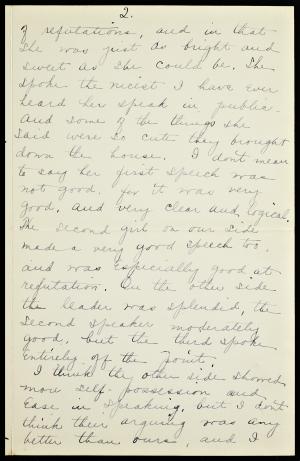 2.
of refutations, and in that
She was just as bright and
sweet as she could be. She
spoke the nicest I have ever
heard her speak in public.
And some of the things she
said were so cute they brought
down the house. I don't mean
to say her first speech was
not good, for it was very
good, and very clear and logical.
The second girl on our side
made a very good speech too,
and was especially good at
refutation. On the other side
the leader was splendid, the
second speaker moderately
good, but the third spoke
entirely off the point.
I think the other side showed
more self-possession and
ease in speaking, but I don't
think their arguing was any
better than ours, and I